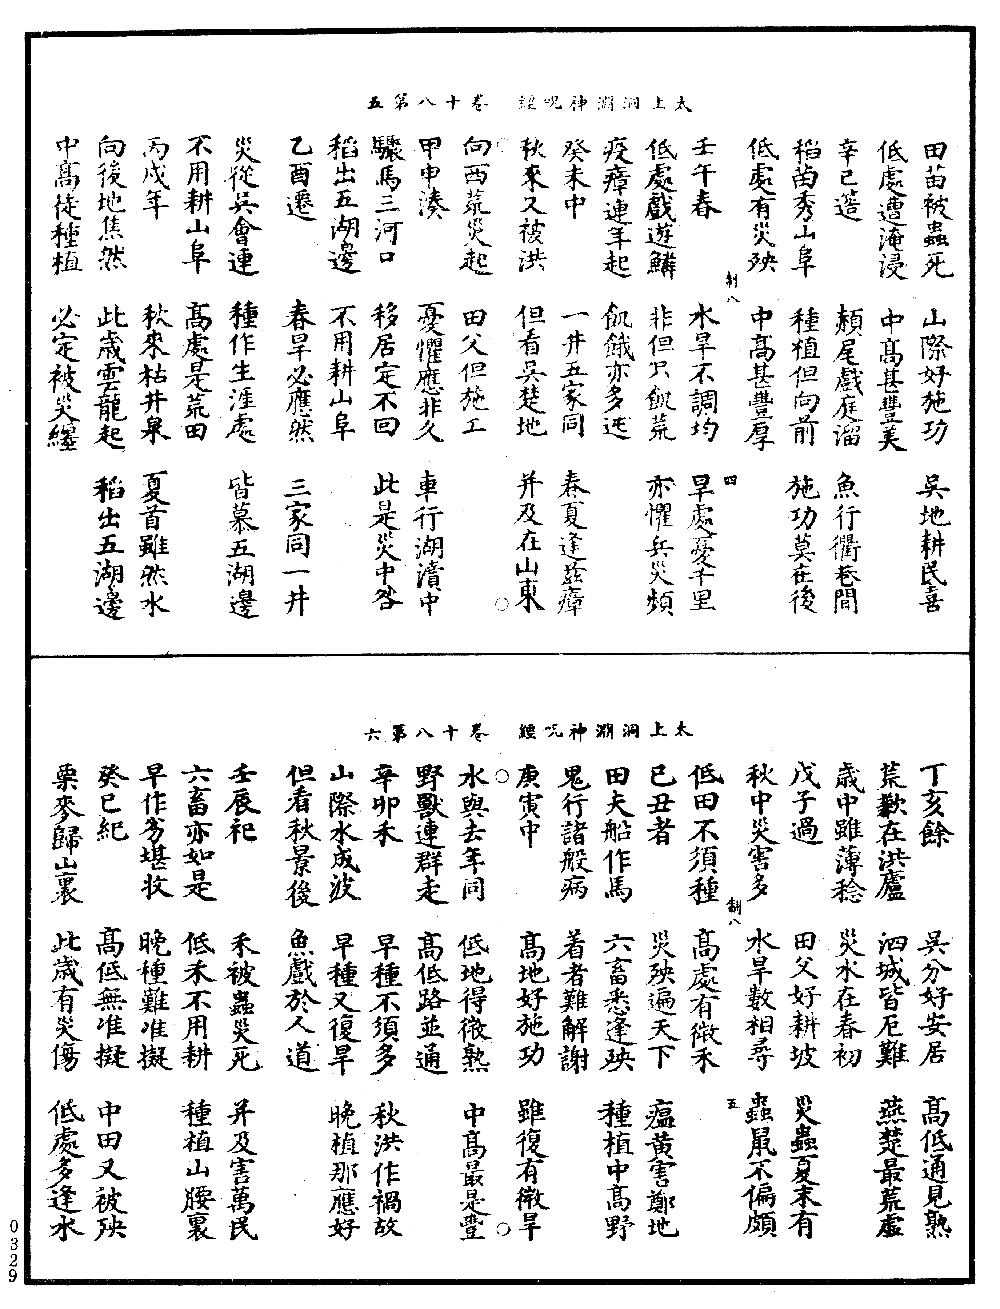 太上洞淵神呪經 卷十八第五
田苗被蟲死 山際好施功 吳地耕民喜
低處遭淹浸 中高甚豐美
辛巳造 頳尾戲庭溜 魚行衢巷間
稻苗秀山阜 種植但向前 施功莫在後
低處有災殃 中高甚豐厚
制八 四
壬午春 水旱不調均 旱處憂千里
低處戲遊鱗 非但只飢荒 亦懼兵災頻
疫瘴連年起 飢餓亦多迍
癸未中 一井五家同 春夏逢災瘴
秋來又被洪 但看吳楚地 并及在山東
向西荒災起 田父但施工
甲申湊 憂懼應非久 車行湖瀆中
驟馬三河口 移居定不回 此是災中咎
稻出五湖邊 不用耕山阜
乙酉遷 春旱必應然 三家同一井
災從吳會連 種作生涯處 皆慕五湖邊
不用耕山阜 高處是荒田
丙戌年 秋來枯井泉 夏首雖然水
向後地焦然 此歲雲龍起 稻出五湖邊
中高徒種植 必定被災纏
太上洞淵神呪經 卷十八第六
丁亥餘 吳分好安居 高低通見熟
荒歉在洪廬 泗城皆厄難 燕楚最荒虛
歲中雖薄稔 災水在春初
戊子過 田父好耕坡 災蟲夏末有
秋中災害多 水旱數相尋 蟲鼠不偏頗
低田不須種 高處有微禾
制八 五
己丑者 災殃遍天下 瘟黃害鄭地
田夫船作馬 六畜悉逢殃 種植中高野
鬼行諸般病 着者難解謝
庚寅中 高地好施功 雖復有微旱
水與去年同 低地得微熟 中高最是豐
野獸連群走 高低路並通
辛卯禾 早種不須多 秋洪作禍故
山際水成波 早種又復旱 晚植那應好
但看秋景後 魚戲於人道
壬辰祀 禾被蟲災死 并及害萬民
六畜亦如是 低禾不用耕 種植山腰裏
早作劣堪收 晚種難准擬
癸巳紀 高低無准擬 中田又被殃
粟麥歸山裏 此歲有災傷 低處多逢水
0329